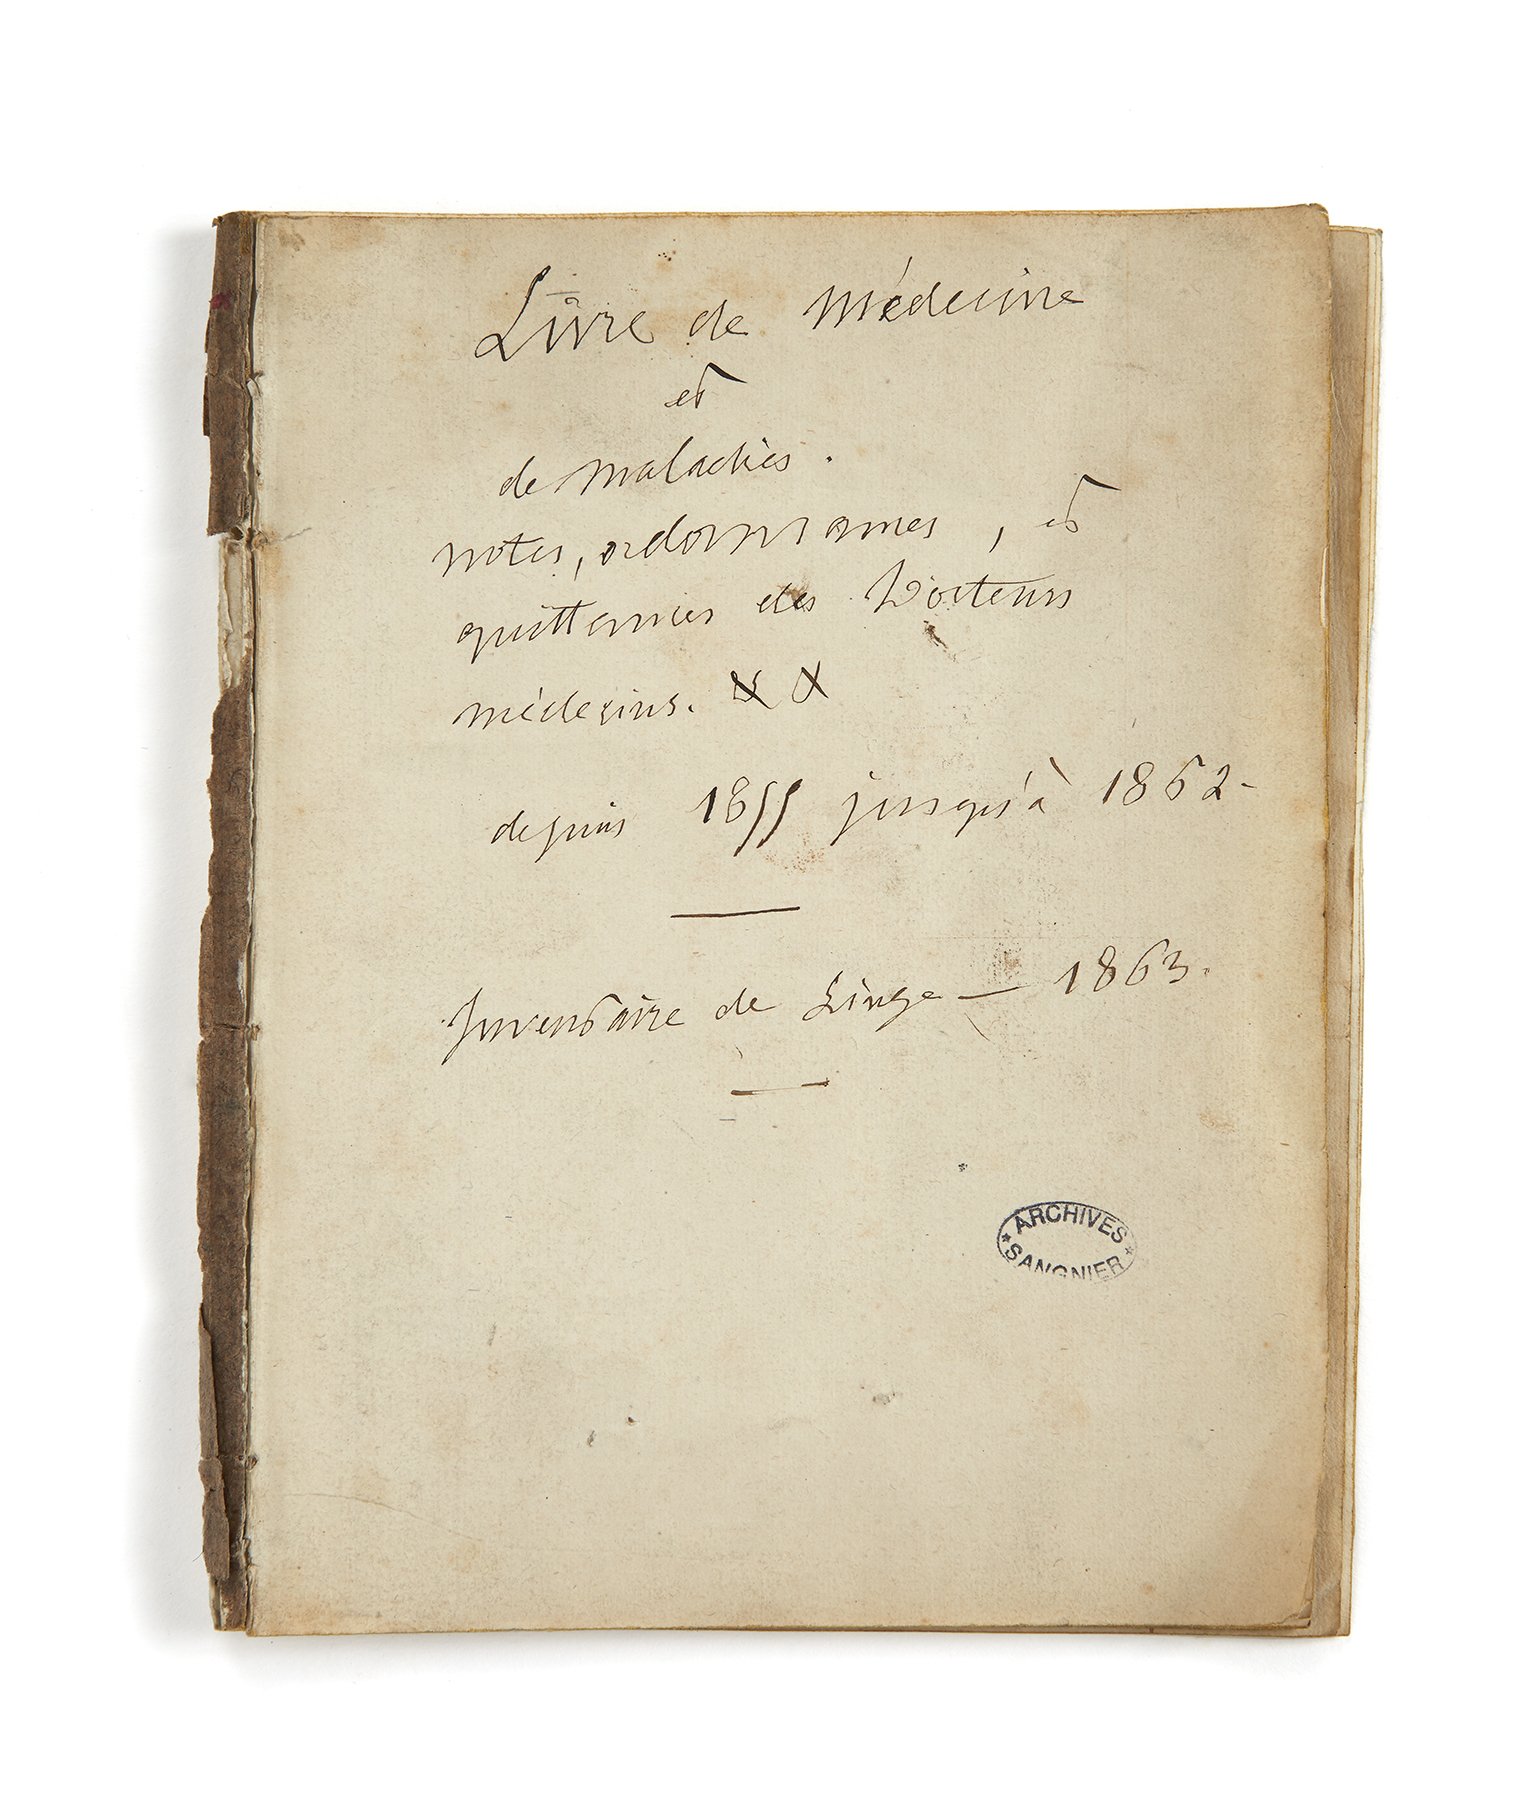 Livre de Médecine
et
de Maladies.
notes, ordonnances, et
quittances des Docteurs
médecins.
depuis 1855 jusqu'à 1862-
Inventaire de Linge — 1863.
ARCHIVES
SANGNIER